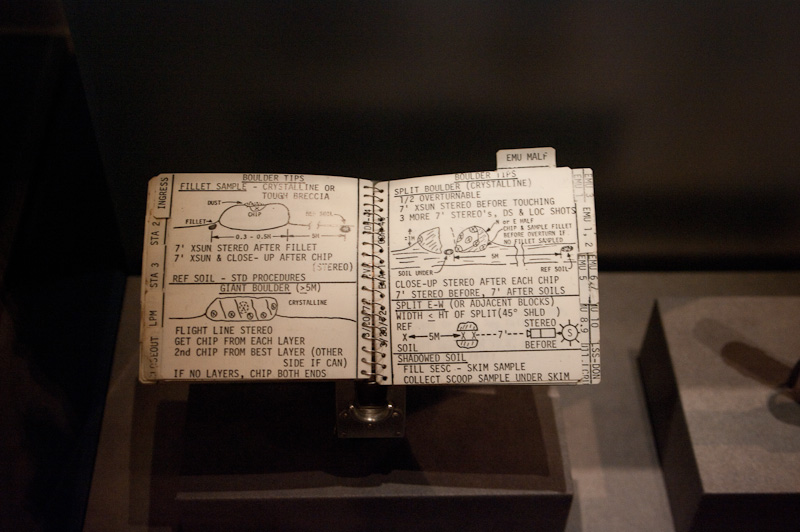 INGRESS
STA 2
STA 3
LPM
CLOSEOUT
BOULDER TIPS
FILLET SAMPLE - CRYSTALLINE OR
TOUGH BRECCIA
DUST
CHIP
FILLET
0.3 - 0.5M
5M
7' XSUN STEREO AFTER FILLET
7' XSUN & CLOSE-UP AFTER CHIP
(STEREO)
REF SOIL - STD PROCEDURES
GIANT BOULDER (>5M)
CRYSTALLINE
FLIGHT LINE STEREO
GET CHIP FROM EACH LAYER
2nd CHIP FROM BEST LAYER (OTHER
SIDE IF CAN)
IF NO LAYERS, CHIP BOTH ENDS
EMU MALF
BOULDER TIPS
SPLIT BOULDER (CRYSTALLINE)
1/2 OVERTURNABLE
7' XSUN STEREO BEFORE TOUCHING
3 MORE 7' STEREO's, DS & LOC SHOTS
N or E HALF
CHIP & SAMPLE FILLET
BEFORE OVERTURN IF
NO FILLET SAMPLED
5M
SOIL UNDER
REF SOIL
CLOSE-UP STEREO AFTER EACH CHIP
7' STEREO BEFORE, 7' AFTER SOILS
SPLIT E-W (OR ADJACENT BLOCKS)
WIDTH < HT OF SPLIT(45° SHLD )
REF
X
5M
X X
7'
STEREO
S
SOIL
BEFORE
SHADOWED SOIL
FILL SESC - SKIM SAMPLE
COLLECT SCOOP SAMPLE UNDER SKIM
EMU 1, 2
EMU 5